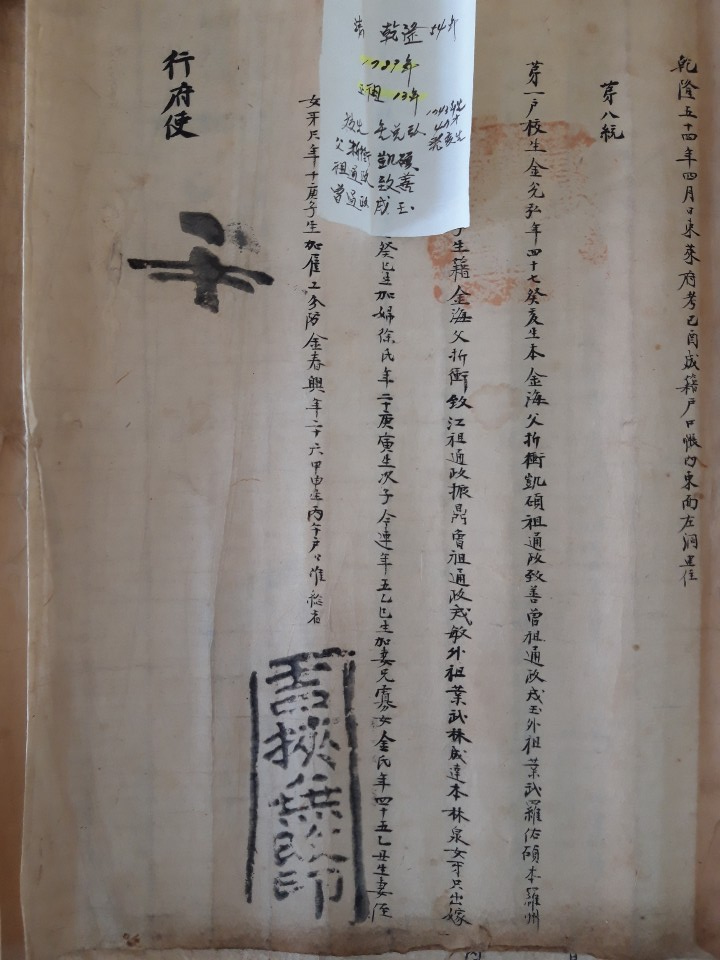 乾隆五十四年四月日東萊府考己酉成籍戶口帳內東面左洞里住
第八統
第一戶校生金光弘年四十七癸亥生本金海父折衝凱碩祖通政致善曾祖通政成玉外祖業武羅佑碩本羅州
子生籍金海父折衝致江祖通政振鼎曾祖通政戒敏外祖業武林成達本林泉女牙只出嫁
癸巳生加婦徐氏年二十庚寅生次子今連年五乙巳生加妻兄寡女金氏年四十五乙丑生妻侄
女牙只年十庚子生加雇工 金春興年二十六甲申生丙午戶口准給者
行府使
周挾無改印
清 乾隆 54年
1789年
正祖 13年
父 折衝 凱碩
祖 通政 致善
曾 通政 成玉